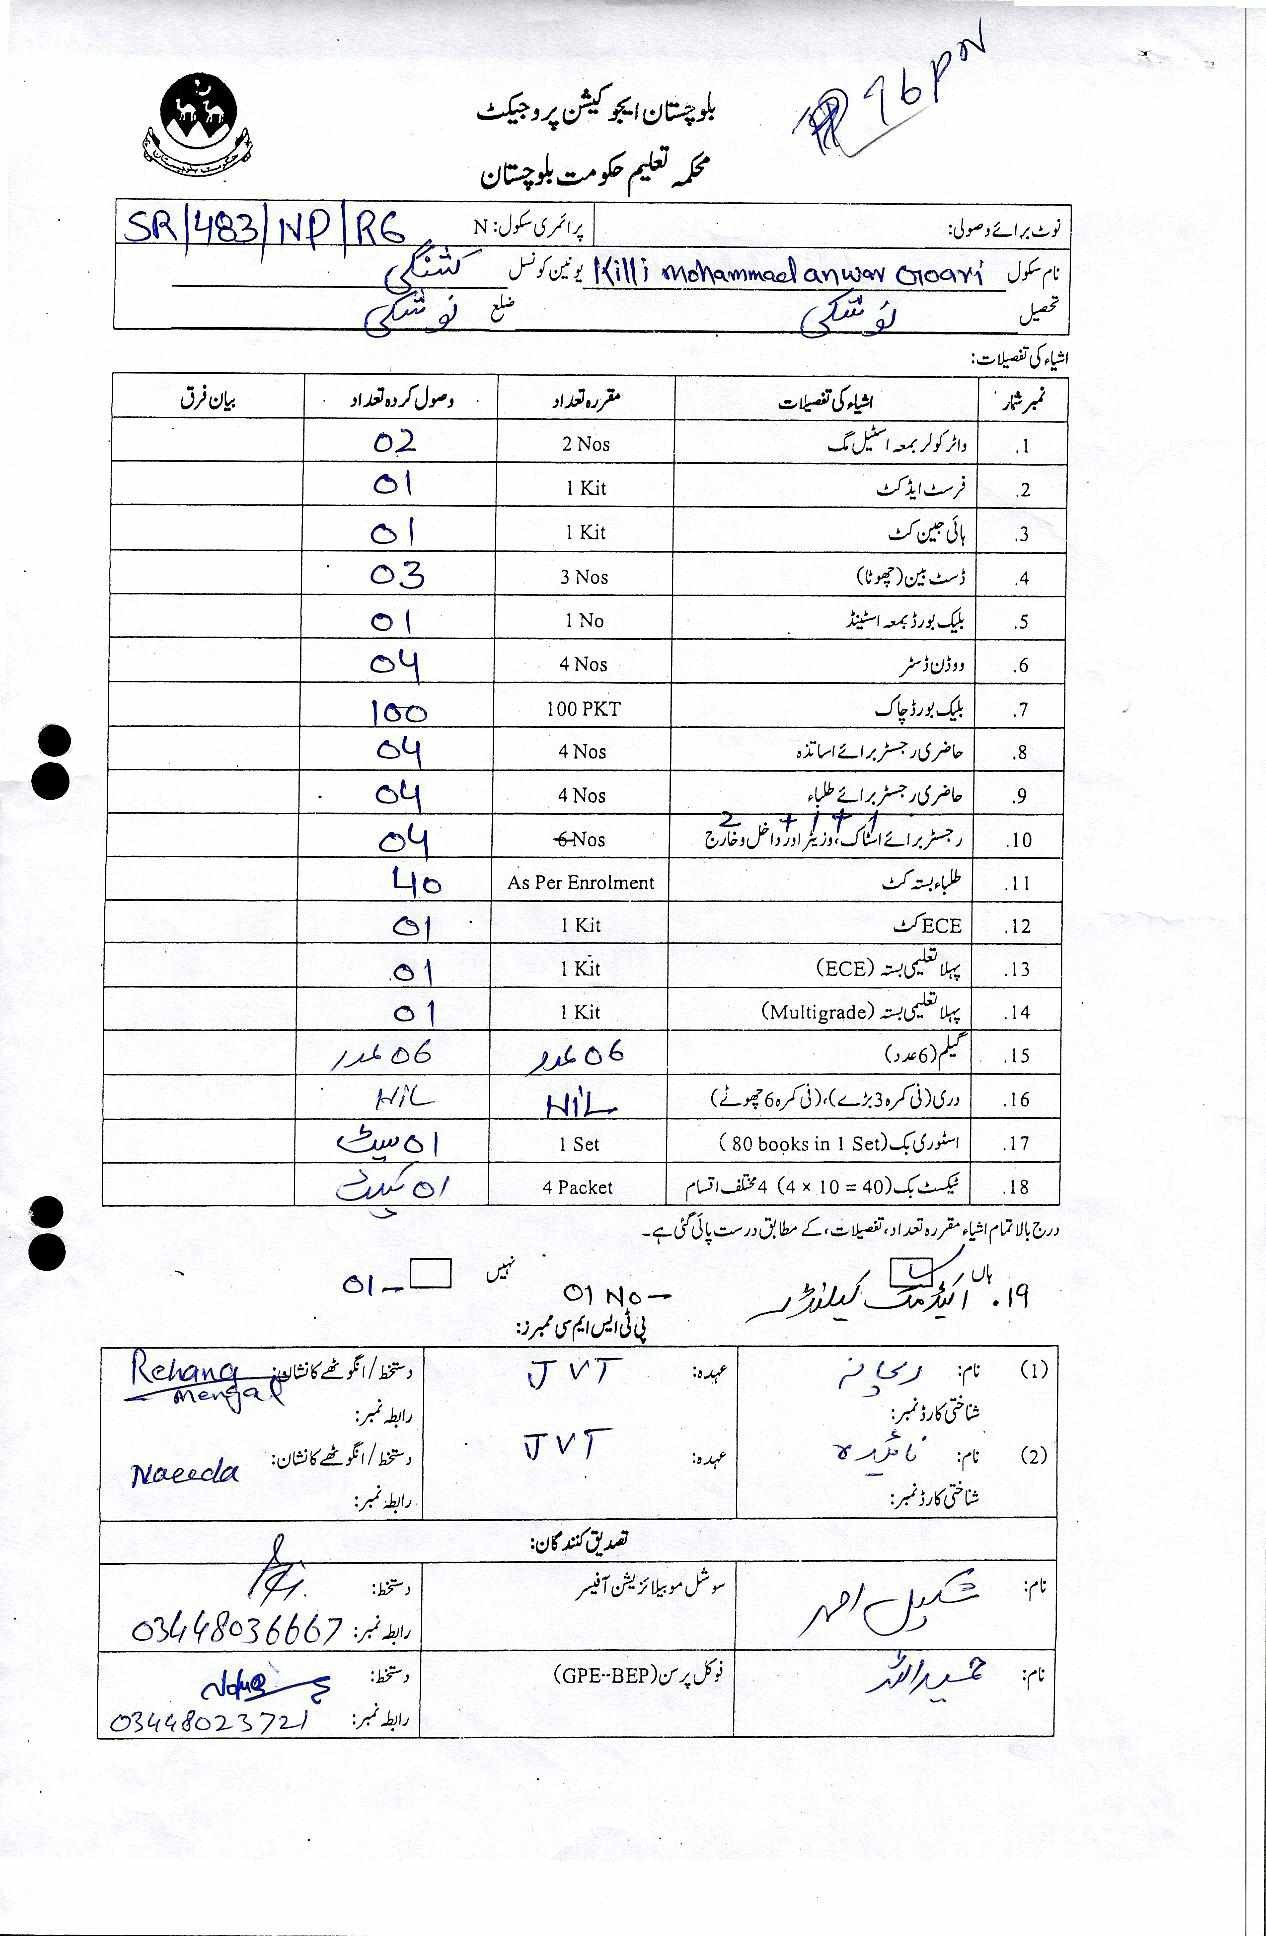 96PN
بلوچستان ایجوکیشن پروجیکٹ
محکمہ تعلیم حکومت بلوچستان
نوٹ برائے وصولی: پرائمری سکول: N SR/483/NP/RG
نام سکول Killi mohammad anwar یونین کونسل کشنگی
تحصیل نوشکی ضلع نوشکی
اشیاء کی تفصیلات:
نمبر شمار اشیاء کی تفصیلات مقررہ تعداد وصول کردہ تعداد بیان فرق
1. واٹر کولر بمعہ اسٹیل مگ 2 Nos 02
2. فرسٹ ایڈ کٹ 1 Kit 01
3. ہائی جین کٹ 1 Kit 01
4. ڈسٹ بین (چھوٹا) 3 Nos 03
5. بلیک بورڈ بمعہ اسٹینڈ 1 No 01
6. ووڈن ڈسٹر 4 Nos 04
7. بلیک بورڈ چاک 100 PKT 100
8. حاضری رجسٹر برائے اساتذہ 4 Nos 04
9. حاضری رجسٹر برائے طلباء 4 Nos 04
2 + 1 + 1
10. رجسٹر برائے اسٹاک، وزیٹر اور داخل و خارج 6 Nos 04
11. طلباء بستہ کٹ As Per Enrolment 40
12. ECE کٹ 1 Kit 01
13. پہلا تعلیمی بستہ (ECE) 1 Kit 01
14. پہلا تعلیمی بستہ (Multigrade) 1 Kit 01
15. گیلم (6 عدد) 06 عدد 06 عدد
16. دری (فی کمرہ 3 بڑے)، (فی کمرہ 6 چھوٹے) NiL NiL
17. اسٹوری بک (80 books in 1 Set) 1 Set 01 سیٹ
18. ٹیکسٹ بک (4 × 10 = 40) 4 مختلف اقسام 4 Packet 01 پیکٹ
درج بالا تمام اشیاء مقررہ تعداد، تفصیلات، کے مطابق درست پائی گئی ہے۔
ہاں نہیں
19. اکیڈمک کیلنڈر 01 No - 01
پی ٹی ایس ایم سی ممبرز:
(1) نام: ریحانہ عہدہ: JVT دستخط/انگوٹھے کا نشان: Rehana mengal
شناختی کارڈ نمبر: رابطہ نمبر:
(2) نام: نائیدہ عہدہ: JVT دستخط/انگوٹھے کا نشان: Naeeda
شناختی کارڈ نمبر: رابطہ نمبر:
تصدیق کنندگان:
نام: شکیل احمد سوشل موبیلائزیشن آفیسر دستخط:
رابطہ نمبر: 03448036667
نام: حمیداللہ فوکل پرسن (GPE--BEP) دستخط:
رابطہ نمبر: 03448023721